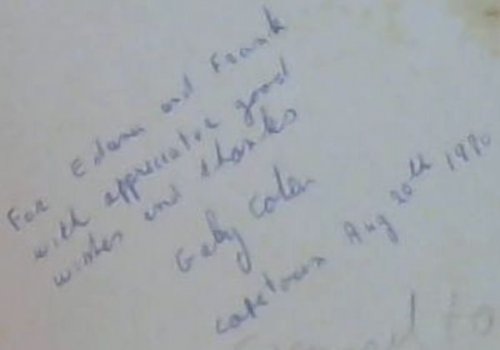 For Edana and Frank
with appreciation good
wishes and thanks
Gaby Cohen
Capetown Aug 20th 1980